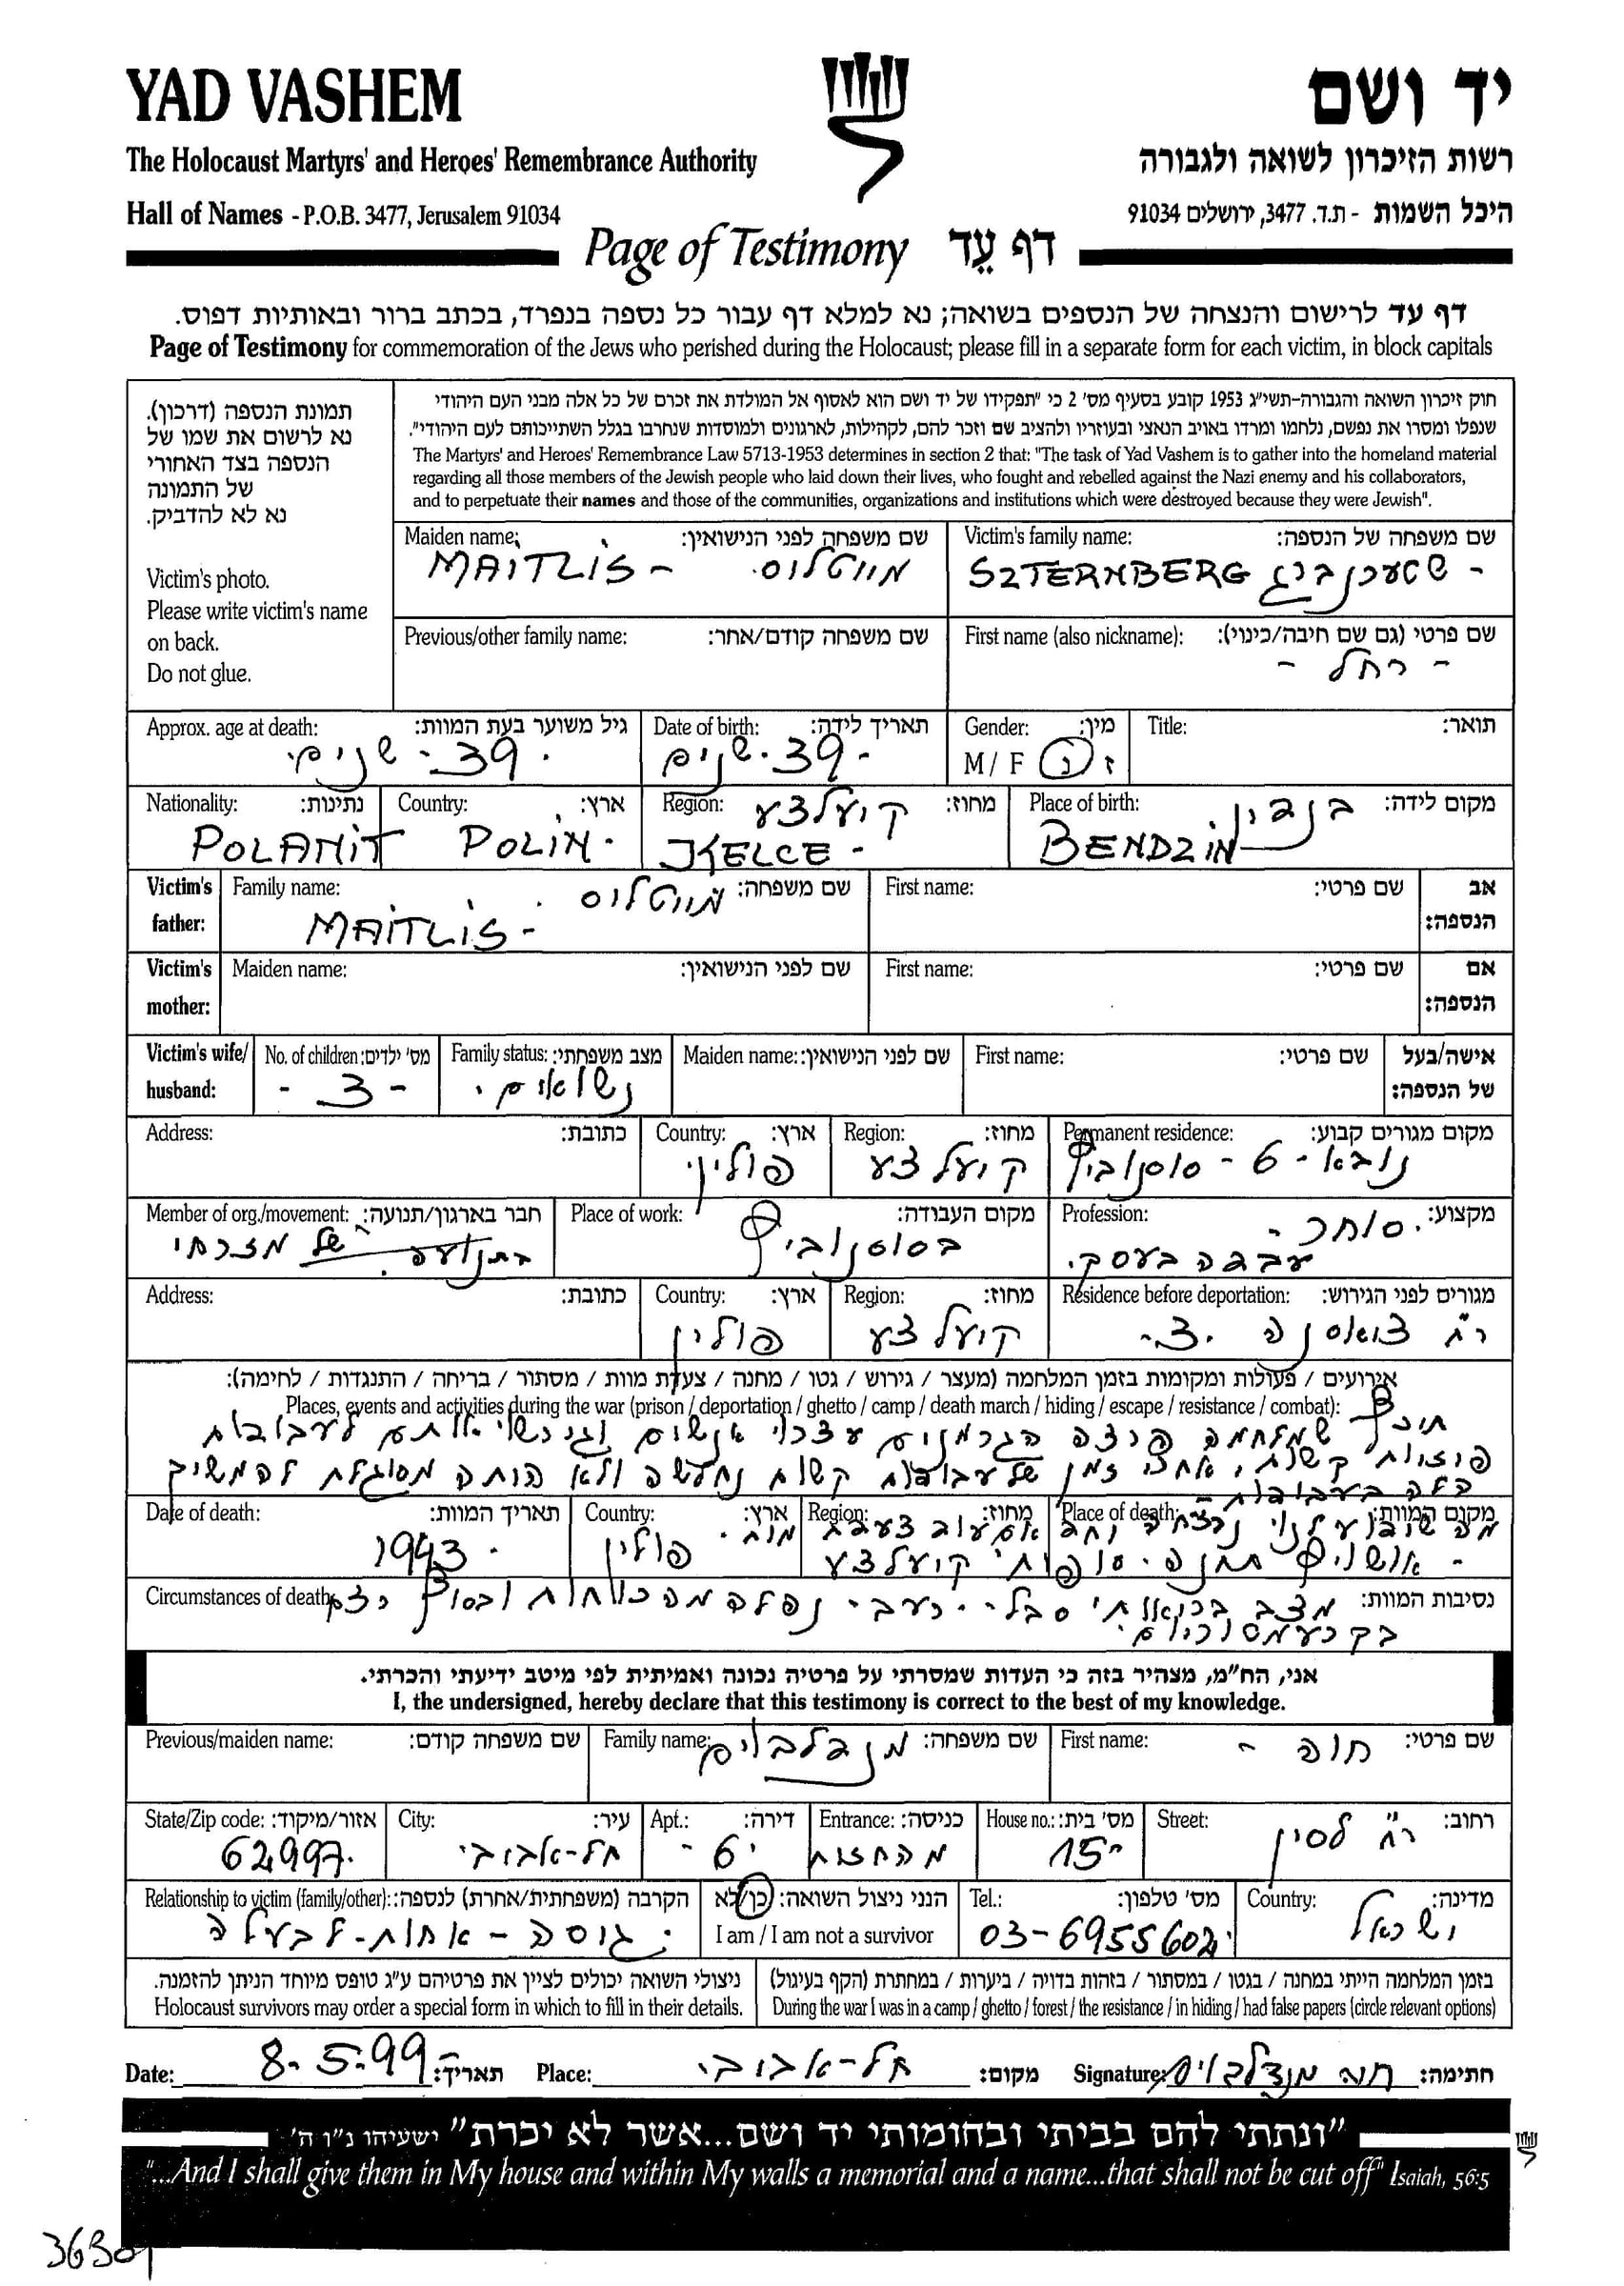 YAD VASHEM
יד ושם
The Holocaust Martyrs' and Heroes' Remembrance Authority
רשות הזיכרון לשואה ולגבורה
Hall of Names - P.O.B. 3477, Jerusalem 91034
היכל השמות - ת.ד. 3477, ירושלים 91034
Page of Testimony דף עֵד
דף עד לרישום והנצחה של הנספים בשואה; נא למלא דף עבור כל נספה בנפרד, בכתב ברור ובאותיות דפוס.
Page of Testimony for commemoration of the Jews who perished during the Holocaust; please fill in a separate form for each victim, in block capitals
תמונת הנספה (דרכון).
נא לרשום את שמו של
הנספה בצד האחורי
של התמונה
נא לא להדביק.
Victim's photo.
Please write victim's name
on back.
Do not glue.
חוק זיכרון השואה והגבורה-תשי"ג 1953 קובע בסעיף מס' 2 כי "תפקידו של יד ושם הוא לאסוף אל המולדת את זכרם של כל אלה מבני העם היהודי
שנפלו ומסרו את נפשם, נלחמו ומרדו באויב הנאצי ובעוזריו ולהציב שם וזכר להם, לקהילות, לארגונים ולמוסדות שנחרבו בגלל השתייכותם לעם היהודי".
The Martyrs' and Heroes' Remembrance Law 5713-1953 determines in section 2 that: "The task of Yad Vashem is to gather into the homeland material
regarding all those members of the Jewish people who laid down their lives, who fought and rebelled against the Nazi enemy and his collaborators,
and to perpetuate their names and those of the communities, organizations and institutions which were destroyed because they were Jewish".
Victim's family name: שם משפחה של הנספה:
SZTERNBERG
Maiden name: שם משפחה לפני הנישואין:
MAITLIS - מייטליס
First name (also nickname): שם פרטי (גם שם חיבה/כינוי):
- רחל -
Previous/other family name: שם משפחה קודם/אחר:
Title: תואר:
Gender: מין:
M / F ז נ
Date of birth: תאריך לידה:
39 - שנים
Approx. age at death: גיל משוער בעת המוות:
39 - שנים
Place of birth: מקום לידה:
בנדין
BENDZIN
Region: מחוז:
קיעלצע
KELCE -
Country: ארץ:
POLIN
Nationality: נתינות:
POLANIT
Victim's father: אב הנספה:
First name: שם פרטי:
Family name: שם משפחה:
מייטליס
MAITLIS -
Victim's mother: אם הנספה:
First name: שם פרטי:
Maiden name: שם לפני הנישואין:
Victim's wife/ husband: אישה/בעל של הנספה:
First name: שם פרטי:
Maiden name: שם לפני הנישואין:
Family status: מצב משפחתי:
No. of children: מס' ילדים:
- 3 -
Permanent residence: מקום מגורים קבוע:
6 - סוסנוביץ
Region: מחוז:
קיעלצע
Country: ארץ:
פולין
Address: כתובת:
Profession: מקצוע:
סוחר -
עבדה בעסק.
Place of work: מקום העבודה:
בסוסנוביץ
Member of org./movement: חבר בארגון/תנועה:
בתנועה של מזרחי
Residence before deportation: מגורים לפני הגירוש:
Region: מחוז:
קיעלצע
Country: ארץ:
פולין
Address: כתובת:
אירועים / פעולות ומקומות בזמן המלחמה (מעצר / גירוש / גטו / מחנה / צעדת מוות / מסתור / בריחה / התנגדות / לחימה):
Places, events and activities during the war (prison / deportation / ghetto / camp / death march / hiding / escape / resistance / combat):
אנשים לעבודות
קשות, אחרי זמן של עבודות קשות נחלשה ולא היתה מסוגלת להמשיך
Place of death: מקום המוות:
Region: מחוז:
קיעלצע
Country: ארץ:
פולין
Date of death: תאריך המוות:
1943
Circumstances of death: נסיבות המוות:
מצב בריאותי סבל - רעב - נפלה מהכוחות ובסוף
אני, הח"מ, מצהיר בזה כי העדות שמסרתי על פרטיה נכונה ואמיתית לפי מיטב ידיעתי והכרתי.
I, the undersigned, hereby declare that this testimony is correct to the best of my knowledge.
First name: שם פרטי:
חוה -
Family name: שם משפחה:
מנדלבוים
Previous/maiden name: שם משפחה קודם:
Street: רחוב:
רח' לסין
House no.: מס' בית:
15
Entrance: כניסה:
Apt.: דירה:
6 -
City: עיר:
תל-אביב
State/Zip code: אזור/מיקוד:
62997
Country: מדינה:
ישראל
Tel.: מס' טלפון:
03-6955602
הנני ניצול השואה: כן/לא
I am / I am not a survivor
Relationship to victim (family/other): הקרבה (משפחתית/אחרת) לנספה:
גיסה - אחות-לבעלה
בזמן המלחמה הייתי במחנה / בגטו / במסתור / בזהות בדויה / ביערות / במחתרת (הקף בעיגול)
During the war I was in a camp / ghetto / forest / the resistance / in hiding / had false papers (circle relevant options)
ניצולי השואה יכולים לציין את פרטיהם ע"ג טופס מיוחד הניתן להזמנה.
Holocaust survivors may order a special form in which to fill in their details.
Date: 8.5.99 תאריך: Place: תל-אביב מקום: Signature: חוה מנדלבוים חתימה:
"ונתתי להם בביתי ובחומותי יד ושם...אשר לא יכרת" ישעיהו נ"ו ה'
"...And I shall give them in My house and within My walls a memorial and a name...that shall not be cut off" Isaiah, 56:5